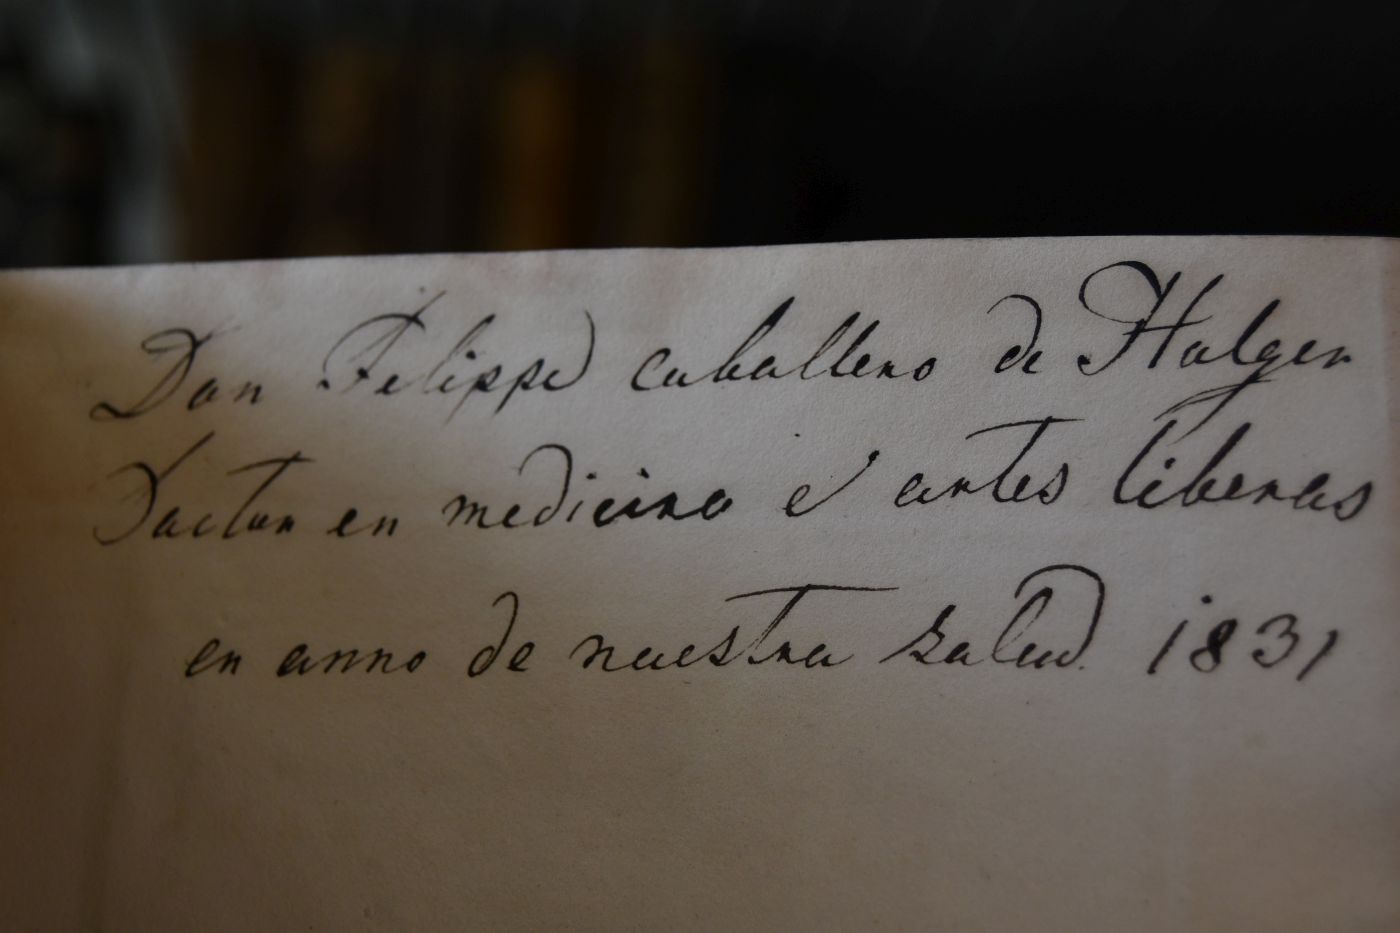 Don Felippe caballero de Holger
Doctor en medicina e artes liberas
en anno de nuestra salud 1831